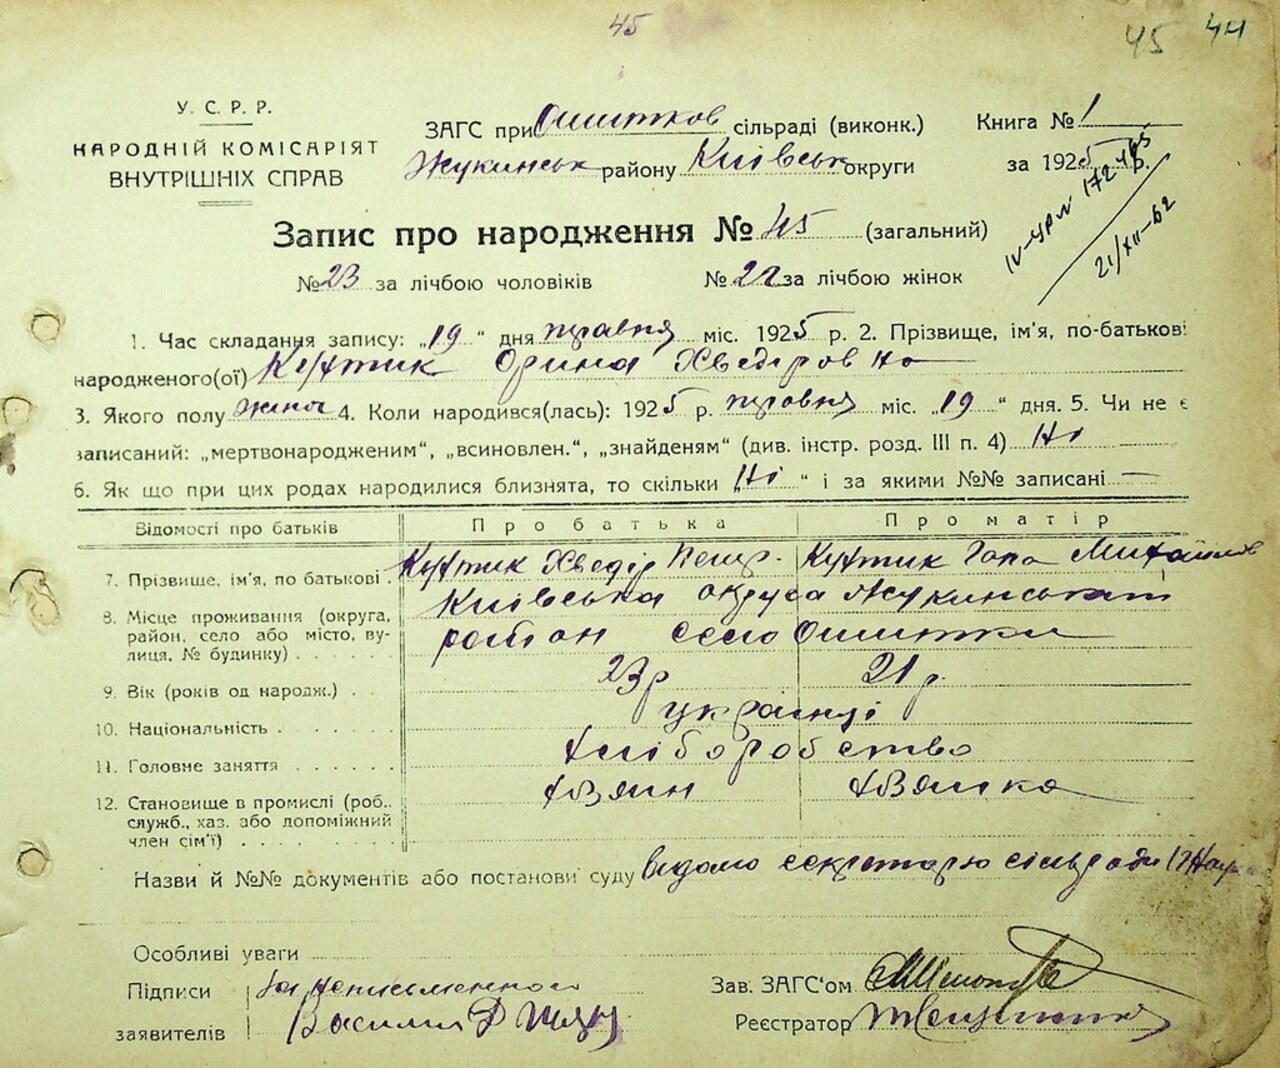 45
45 44
У. С. Р. Р.
НАРОДНІЙ КОМІСАРІЯТ
ВНУТРІШНІХ СПРАВ
ЗАГС при Ошитков сільраді (виконк.)
Жукинськ району Київськ округи
Книга № 1
за 1925 р.
21/XII-62
Запис про народження № 45 (загальний)
№ 23 за лічбою чоловіків № 22 за лічбою жінок
1. Час складання запису: „19“ дня травня міс. 1925 р. 2. Прізвище, ім'я, по-батькові
народженого(ої) Орина Хведоровна
3. Якого полу жіноч 4. Коли народився(лась): 1925 р. травня міс. „19“ дня. 5. Чи не є
записаний: „мертвонародженим“, „всиновлен.“, „знайденям“ (див. інстр. розд. III п. 4) Ні
6. Як що при цих родах народилися близнята, то скільки „Ні“ і за якими №№ записані —
Відомості про батьків Про батька Про матір
7. Прізвище, ім'я, по батькові . Хведір Петр. Гапа Михайлов
8. Місце проживання (округа, Київська округа Жукинський
район, село або місто, ву- район село Ошитки
лиця, № будинку) . . . . .
9. Вік (років од народж.) . 23 р 21 р.
10. Національність . . . . . українці
11. Головне заняття . . . . . . хліборобство
12. Становище в промислі (роб.. хазяин хазяика
служб., хаз. або допоміжний
член сім'ї) . . . . . . .
Назви й №№ документів або постанови суду видомо секретарю сільради
Особливі уваги
Підписи За неписьменного
заявителів Василий
Зав. ЗАГС'ом
Реєстратор